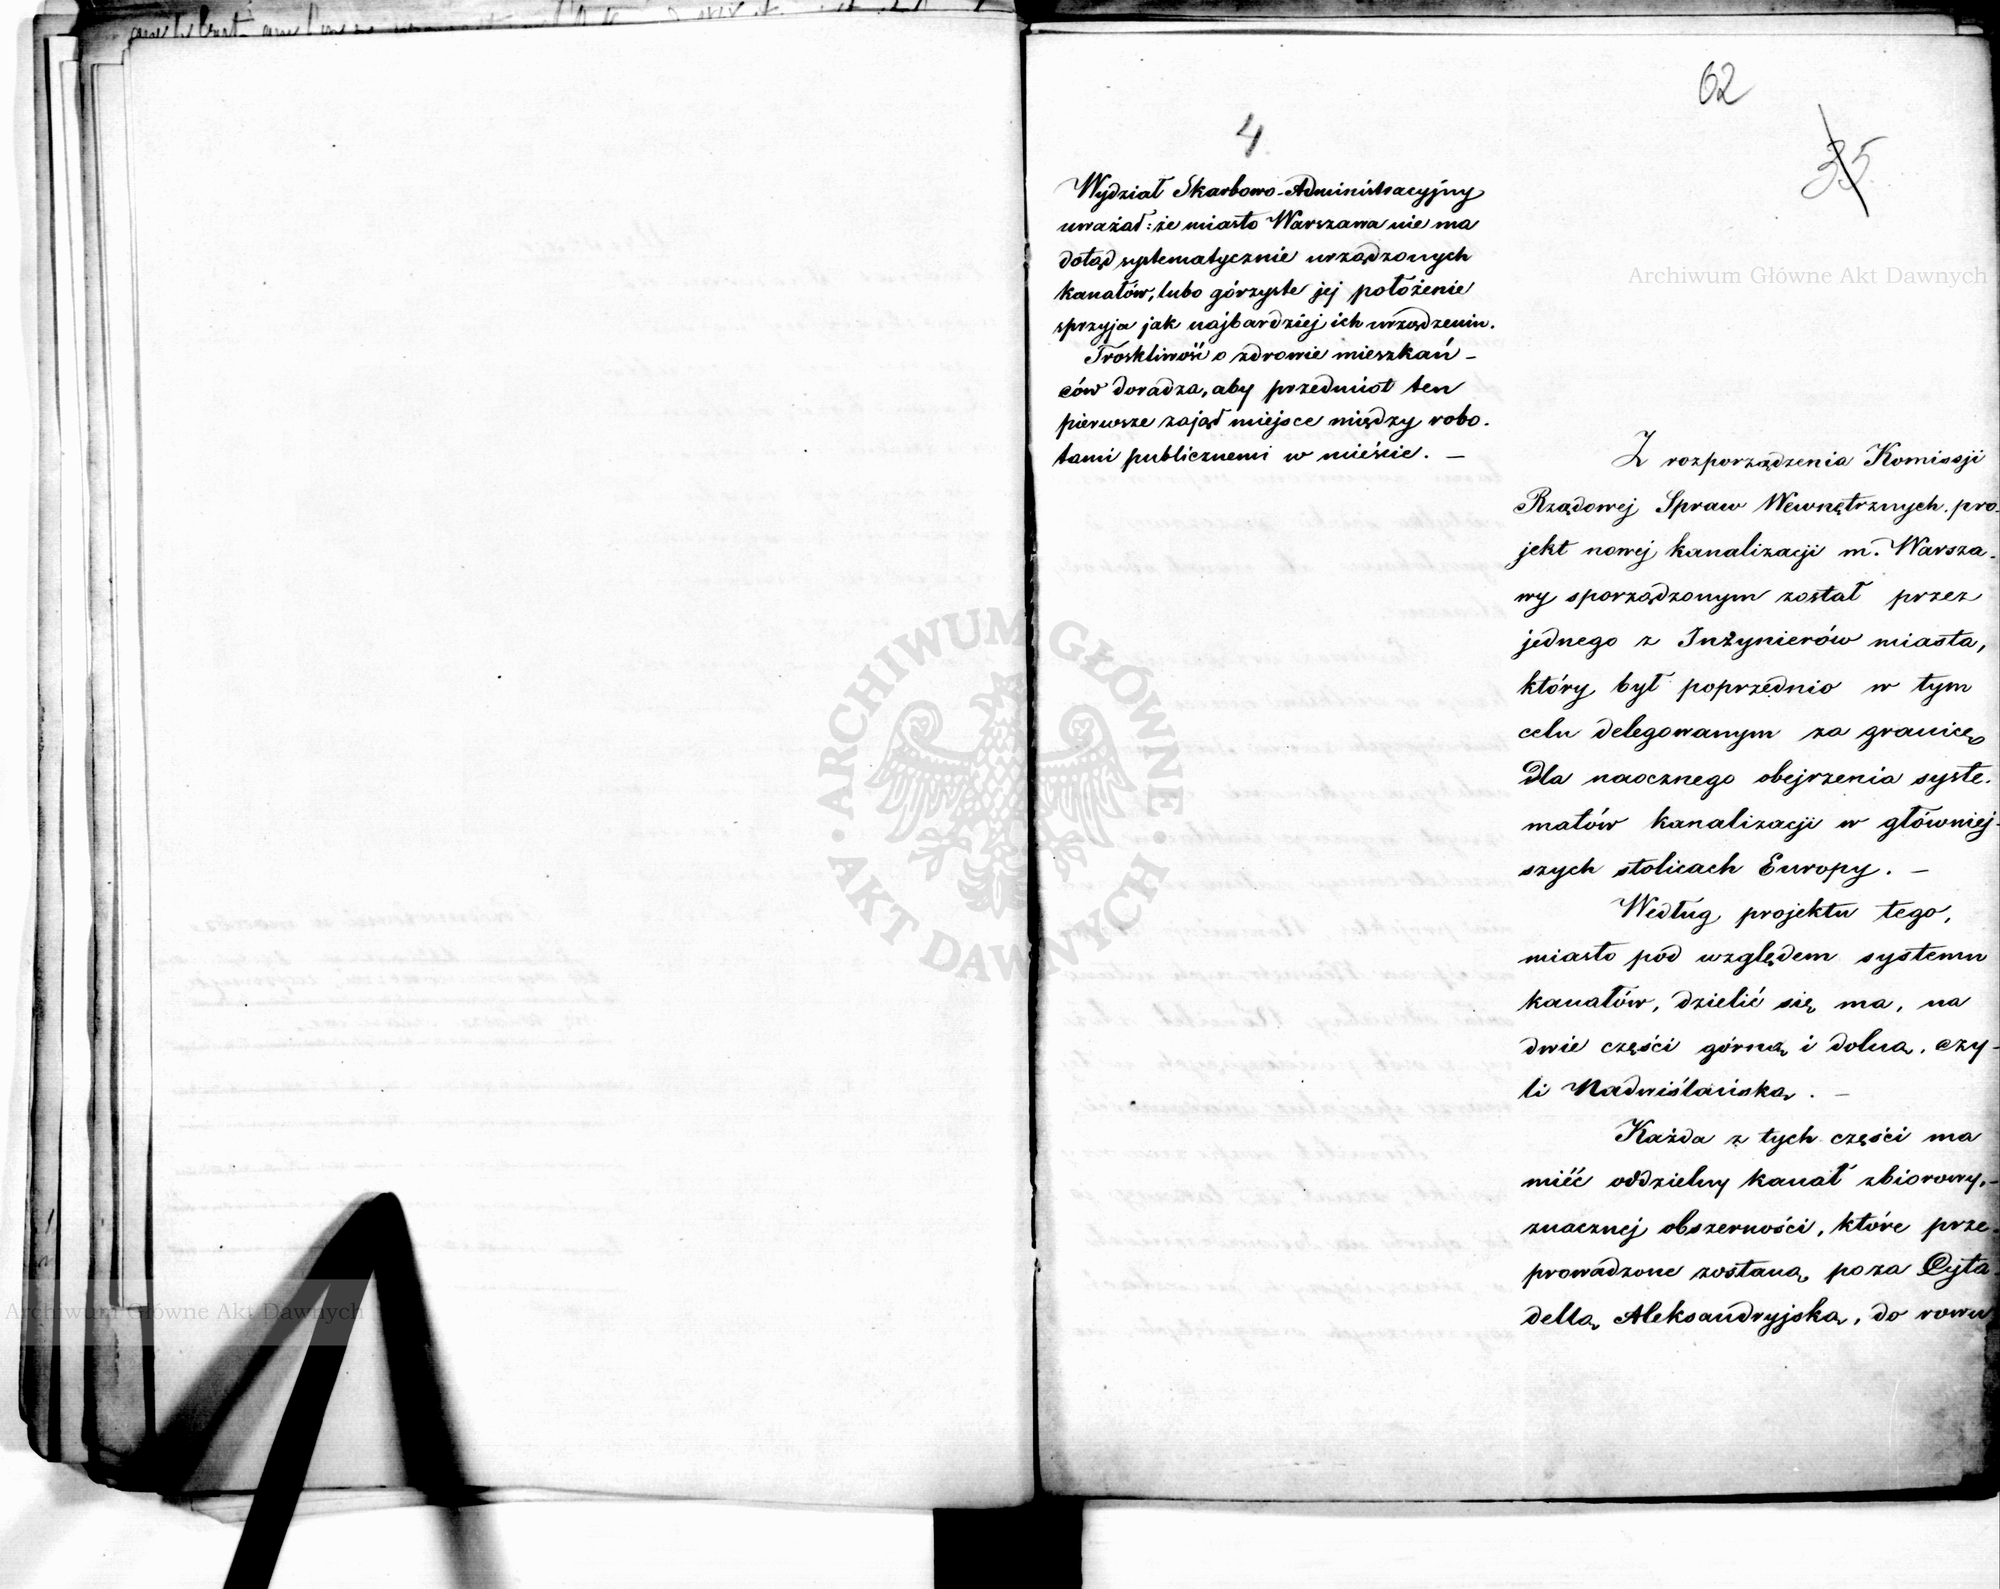 62
35
4
Wydział Skarbowo-Administracyjny
uważał: że miasto Warszawa nie ma
dotąd systematycznie urządzonych
kanałów, lubo górzyste jej położenie
sprzyja jak najbardziej ich urządzeniu.
Troskliwość o zdrowie mieszkań-
ców doradza, aby przedmiot ten
pierwsze zajął miejsce między robo-
tami publicznemi w mieście. —
Z rozporządzenia Komissji
Rządowej Spraw Wewnętrznych, pro-
jekt nowej kanalizacji m. Warsza-
wy sporządzonym został przez
jednego z Inżynierów miasta,
który był poprzednio w tym
celu delegowanym za granicę
dla naocznego obejrzenia syste-
matów kanalizacji w główniej-
szych stolicach Europy. —
Według projektu tego,
miasto pod względem systemu
kanałów, dzielić się ma, na
dwie części górną i dolną, czy-
li Nadwiślańską. —
Każda z tych części ma
mieć oddzielny kanał zbiorowy,
znacznej obszerności, które prze-
prowadzone zostaną poza Cyta-
dellą Aleksandryjską, do rowu
Archiwum Główne Akt Dawnych
ARCHIWUM GŁÓWNE · AKT DAWNYCH ·
Archiwum Główne Akt Dawnych